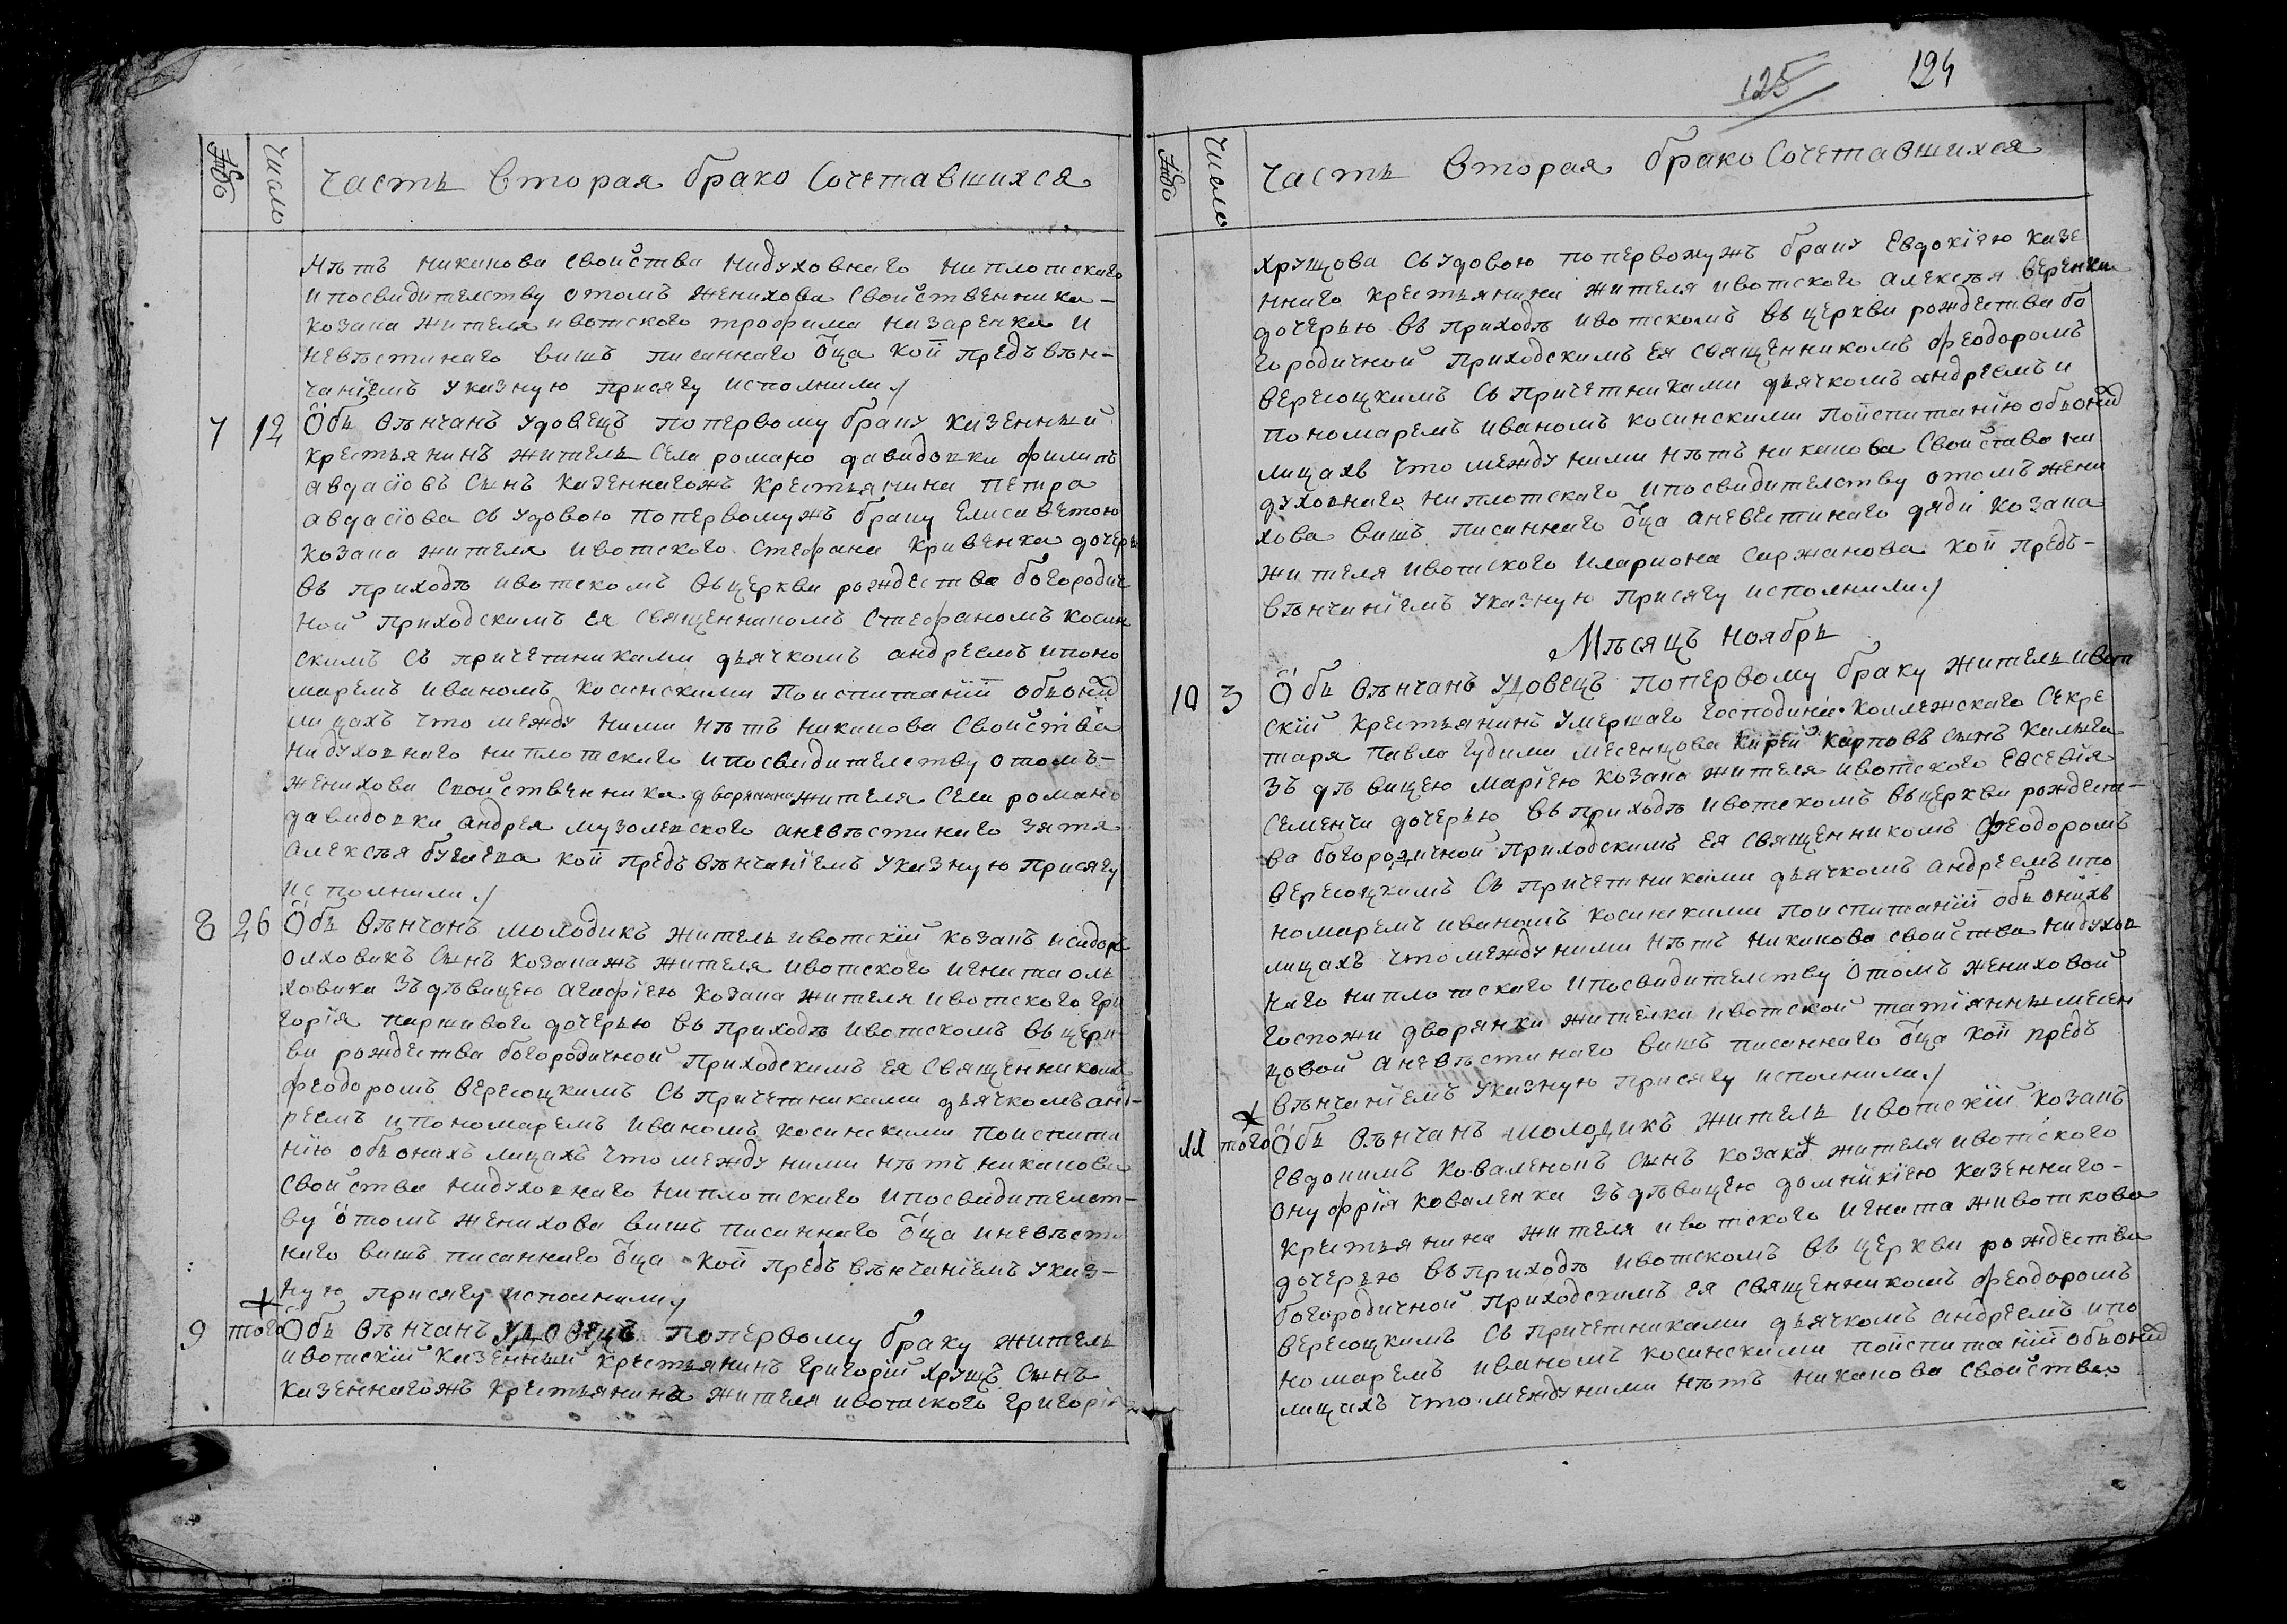 №
Число
Часть Вторая брако Сочетавшихся
Нѣтъ никакова Свойства нидуховнаго ниплотскаго
ипосвидителству отомъ женихова Свойственника-
козака жителя ивотского трофима назаренка и
невѣстинаго вишъ писаннаго ѿца кои предъ вѣн-
чанїемъ указную присягу исполнили
7 12 Обь вѣнчанъ удовецъ попервому браку казенный
крестьянинъ житель Села романо давидовки филипъ
авдасїовъ Сынъ казеннагожъ крестьянина петра
авдасїова Съ удовою попервомужъ браку Елисаветою
козака жителя ивотского Стефана кривенка дочерь
въ приходѣ ивотскомъ въцеркви рождества богородич
ной приходскимъ ея Священникомъ Стефаномъ косин
скимъ Съ причетниками дьячкомъ андреемъ ипоно
маремъ иваномъ косинскими поиспитанїи объонихъ
лицахъ что между ними нѣтъ никакова Свойства
нидуховнаго ниплотскаго ипосвидителству отомъ-
женихова свойственника дворянина жителя Села романо
давидовки андрея музолевского аневѣстинаго зятя
алексѣя кои предъ вѣнчанїемъ указную присягу
исполнили
8 26 Обь вѣнчанъ молодикъ житель ивотскїй козакъ исидоръ
олховикъ Сынъ козакажъ жителя ивотского игната оль
ховика зъ дѣвицею агафїею козака жителя ивотского гри
горїя паршивого дочерью въ приходѣ ивотскомъ въ церк
ви рождества богородичной приходскимъ ея Священникомъ
феодоромъ вересоцкимъ Съ причетниками дьячкомъ анд-
реемъ ипономаремъ иваномъ косинскими поиспита
нїю объонихъ лицахъ что между ними нѣтъ никакова
Свойства нидуховнаго ниплотскаго ипосвидителст-
ву отомъ женихова вишъ писаннаго ѿца иневѣсти
наго вишъ писаннаго ѿца кои предъ вѣнчанїемъ указ-
ную присягу исполнили
9 того Обь вѣнчанъ удовецъ попервому браку житель
ивотскїй казенный крестьянинъ григорїй хрущъ Сынъ
казеннагожъ крестьянина жителя ивотского григорїя
125 124
№
Число
Часть Вторая брако Сочетавшихся
хрущова Съ удовою попервомужъ браку Евдокїею казе
ннаго крестьянина жителя ивотского алексѣя веренки
дочерью въ приходѣ ивотскомъ въ церкви рождества бо
городичной приходскимъ ея священникомъ феодоромъ
вересоцкимъ Съ причетниками дьячкомъ андреемъ и
пономаремъ иваномъ косинскими поиспитанїю объонихъ
лицахъ что между ними нѣтъ никакова Свойства ни
духовнаго ниплотскаго ипосвидителству отомъ жени
хова вишъ писаннаго ѿца аневестинаго дяди козака
жителя ивотского илариона саржанова кои предъ-
вѣнчанїемъ указную присягу исполнили
Мѣсяцъ ноябрь
10 3 Обь вѣнчанъ удовецъ попервому браку житель ивот
скїй крестьянинъ умершаго господина коллежскаго Секре
таря павла гудими месенцова Карповъ Сынъ
зъ дѣвицею марїею козака жителя ивотского Евсевїя
Семенчи дочерью въ приходѣ ивотскомъ въцеркви рождест-
ва богородичной приходскимъ ея священникомъ феодоромъ
вересоцкимъ Съ причетниками дьячкомъ андреемъ ипо
номаремъ иваномъ косинскими поиспитанїи объ онихъ
лицахъ что между ними нѣтъ никакова свойства нидухов
наго ниплотскаго ипосвидителству отомъ жениховой
госпожи дворянки жителки ивотской татїянны месен
цовой аневѣстинаго вишъ писаннаго ѿца кои предъ
вѣнчанїемъ указную присягу исполнили
11 того Обь вѣнчанъ молодикъ житель ивотскїй козакъ
Евдокимъ коваленокъ Сынъ козака жителя ивотского
онуфрїя коваленка зъ дѣвицею домникїею казеннаго-
крестьянина жителя ивотского игната животкова
дочерью въ приходѣ ивотскомъ въ церкви рождества
богородичной приходскимъ ея священникомъ феодоромъ
вересоцкимъ Съ причетниками дьячкомъ андреемъ ипо
номаремъ иваномъ косинскими поиспитанїи объонихъ
лицахъ что между ними нѣтъ никакова Свойства